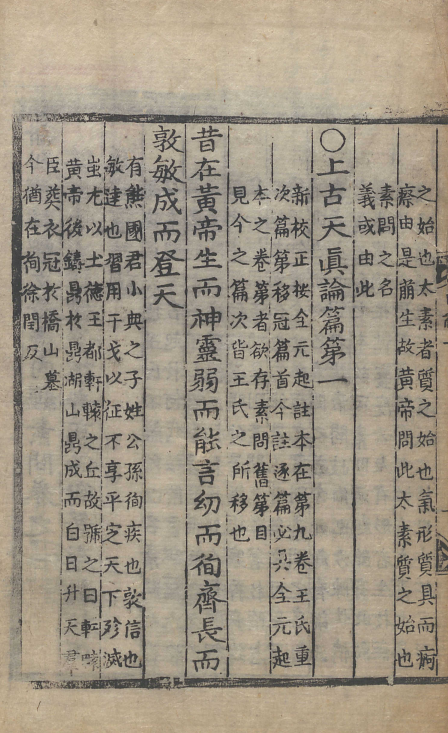 之始也太素者質之始也氣形質具而痾
瘵由是萠生故黃帝問此太素質之始也
素問之名
義或由此
○上古天眞論篇第一
新校正按全元起註本在第九卷王氏重
次篇第移冠篇首今註逐篇必具全元起
本之卷第者欲存素問舊第目
見今之篇次皆王氏之所移也
昔在黃帝生而神靈弱而能言幼而徇齊長而
敦敏成而登天
有熊國君小典之子姓公孫徇疾也敦信也
敏達也習用干戈以征不享平定天下殄滅
蚩尤以土德王都軒轅之丘故號之曰軒轅
黃帝後鑄鼎於鼎湖山鼎成而白日升天群
臣葬衣冠於橋山墓
今猶在徇徐閏反